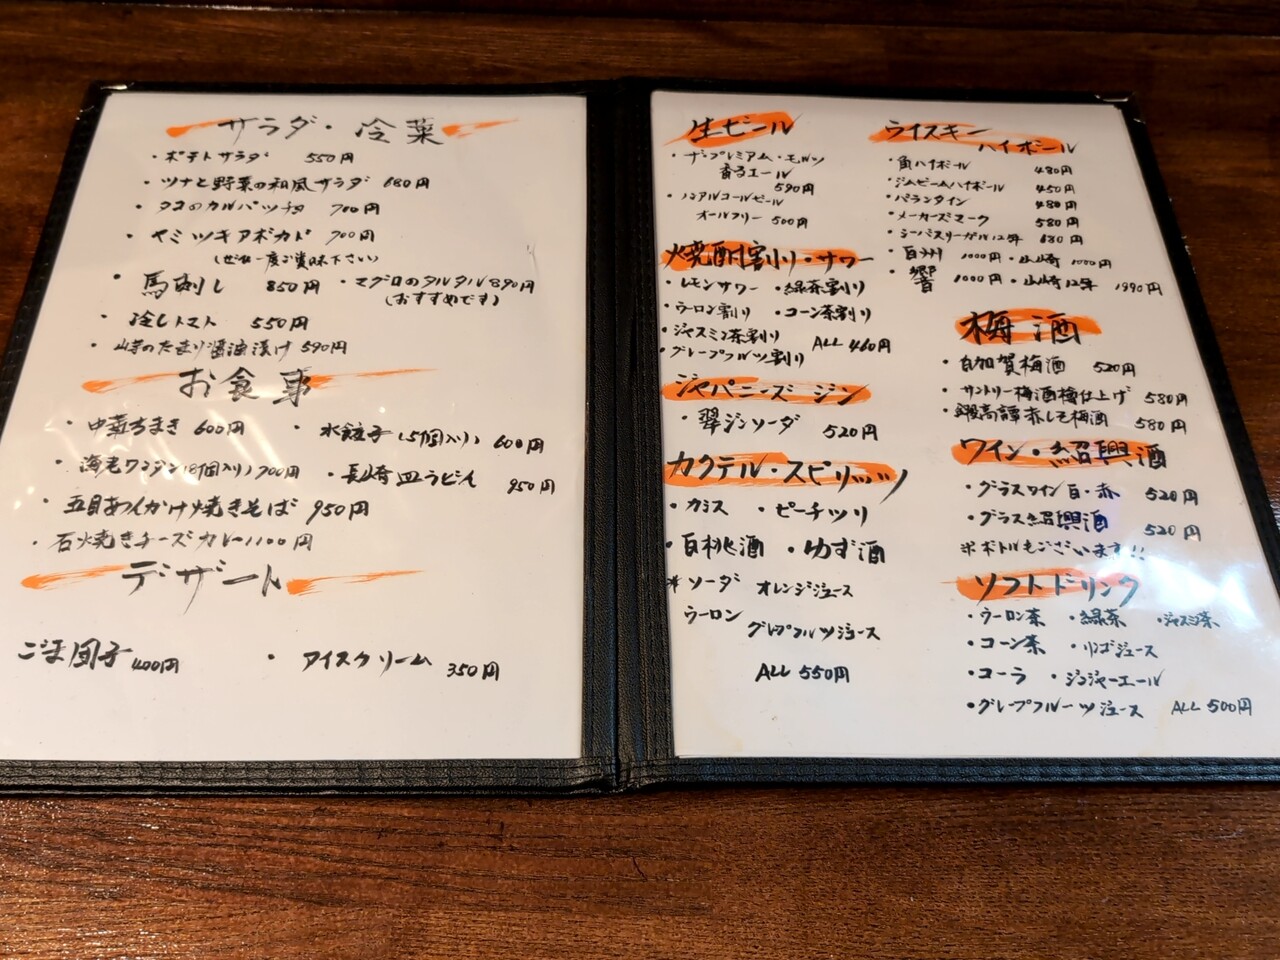 サラダ・冷菜
・ポテトサラダ 550円
・ツナと野菜の和風サラダ 680円
・タコのカルパッチョ 700円
・ヤミツキアボカド 700円
(ぜひ一度ご賞味下さい)
・馬刺し 850円 ・マグロのタルタル 890円
(おすすめです)
・冷しトマト 550円
・山芋のたまり醤油漬け 590円
お食事
・中華ちまき 600円 ・水餃子(5個入り) 600円
・海老ワンタン(8個入り) 700円 ・長崎皿うどん 950円
・五目あんかけ焼きそば 950円
・石焼きチーズカレー 1100円
デザート
ごま団子 400円 ・アイスクリーム 350円
生ビール
・ザ・プレミアム・モルツ
香るエール
590円
・ノンアルコールビール
オールフリー 500円
焼酎割り・サワー
・レモンサワー ・緑茶割り
・ウーロン割り ・コーン茶割り
・ジャスミン茶割り
・グレープフルーツ割り ALL 460円
ジャパニーズ・ジン
・翠ジンソーダ 520円
カクテル・スピリッツ
・カシス ・ピーチツリ
・白桃酒 ・ゆず酒
※ソーダ オレンジジュース
ウーロン グレープフルーツジュース
ALL 550円
ウイスキー
ハイボール
・角ハイボール 480円
・ジムビームハイボール 450円
・バランタイン 480円
・メーカーズマーク 580円
・シーバスリーガル12年 680円
・白州 1000円 ・山崎 1000円
・響 1000円 ・山崎12年 1990円
梅酒
・白加賀梅酒 520円
・サントリー梅酒樽仕上げ 580円
・鍛高譚赤しそ梅酒 580円
ワイン・紹興酒
・グラスワイン白・赤 520円
・グラス紹興酒 520円
※ボトルもございます!!
ソフトドリンク
・ウーロン茶 ・緑茶 ・ジャスミン茶
・コーン茶 ・リンゴジュース
・コーラ ・ジンジャーエール
・グレープフルーツジュース ALL 500円